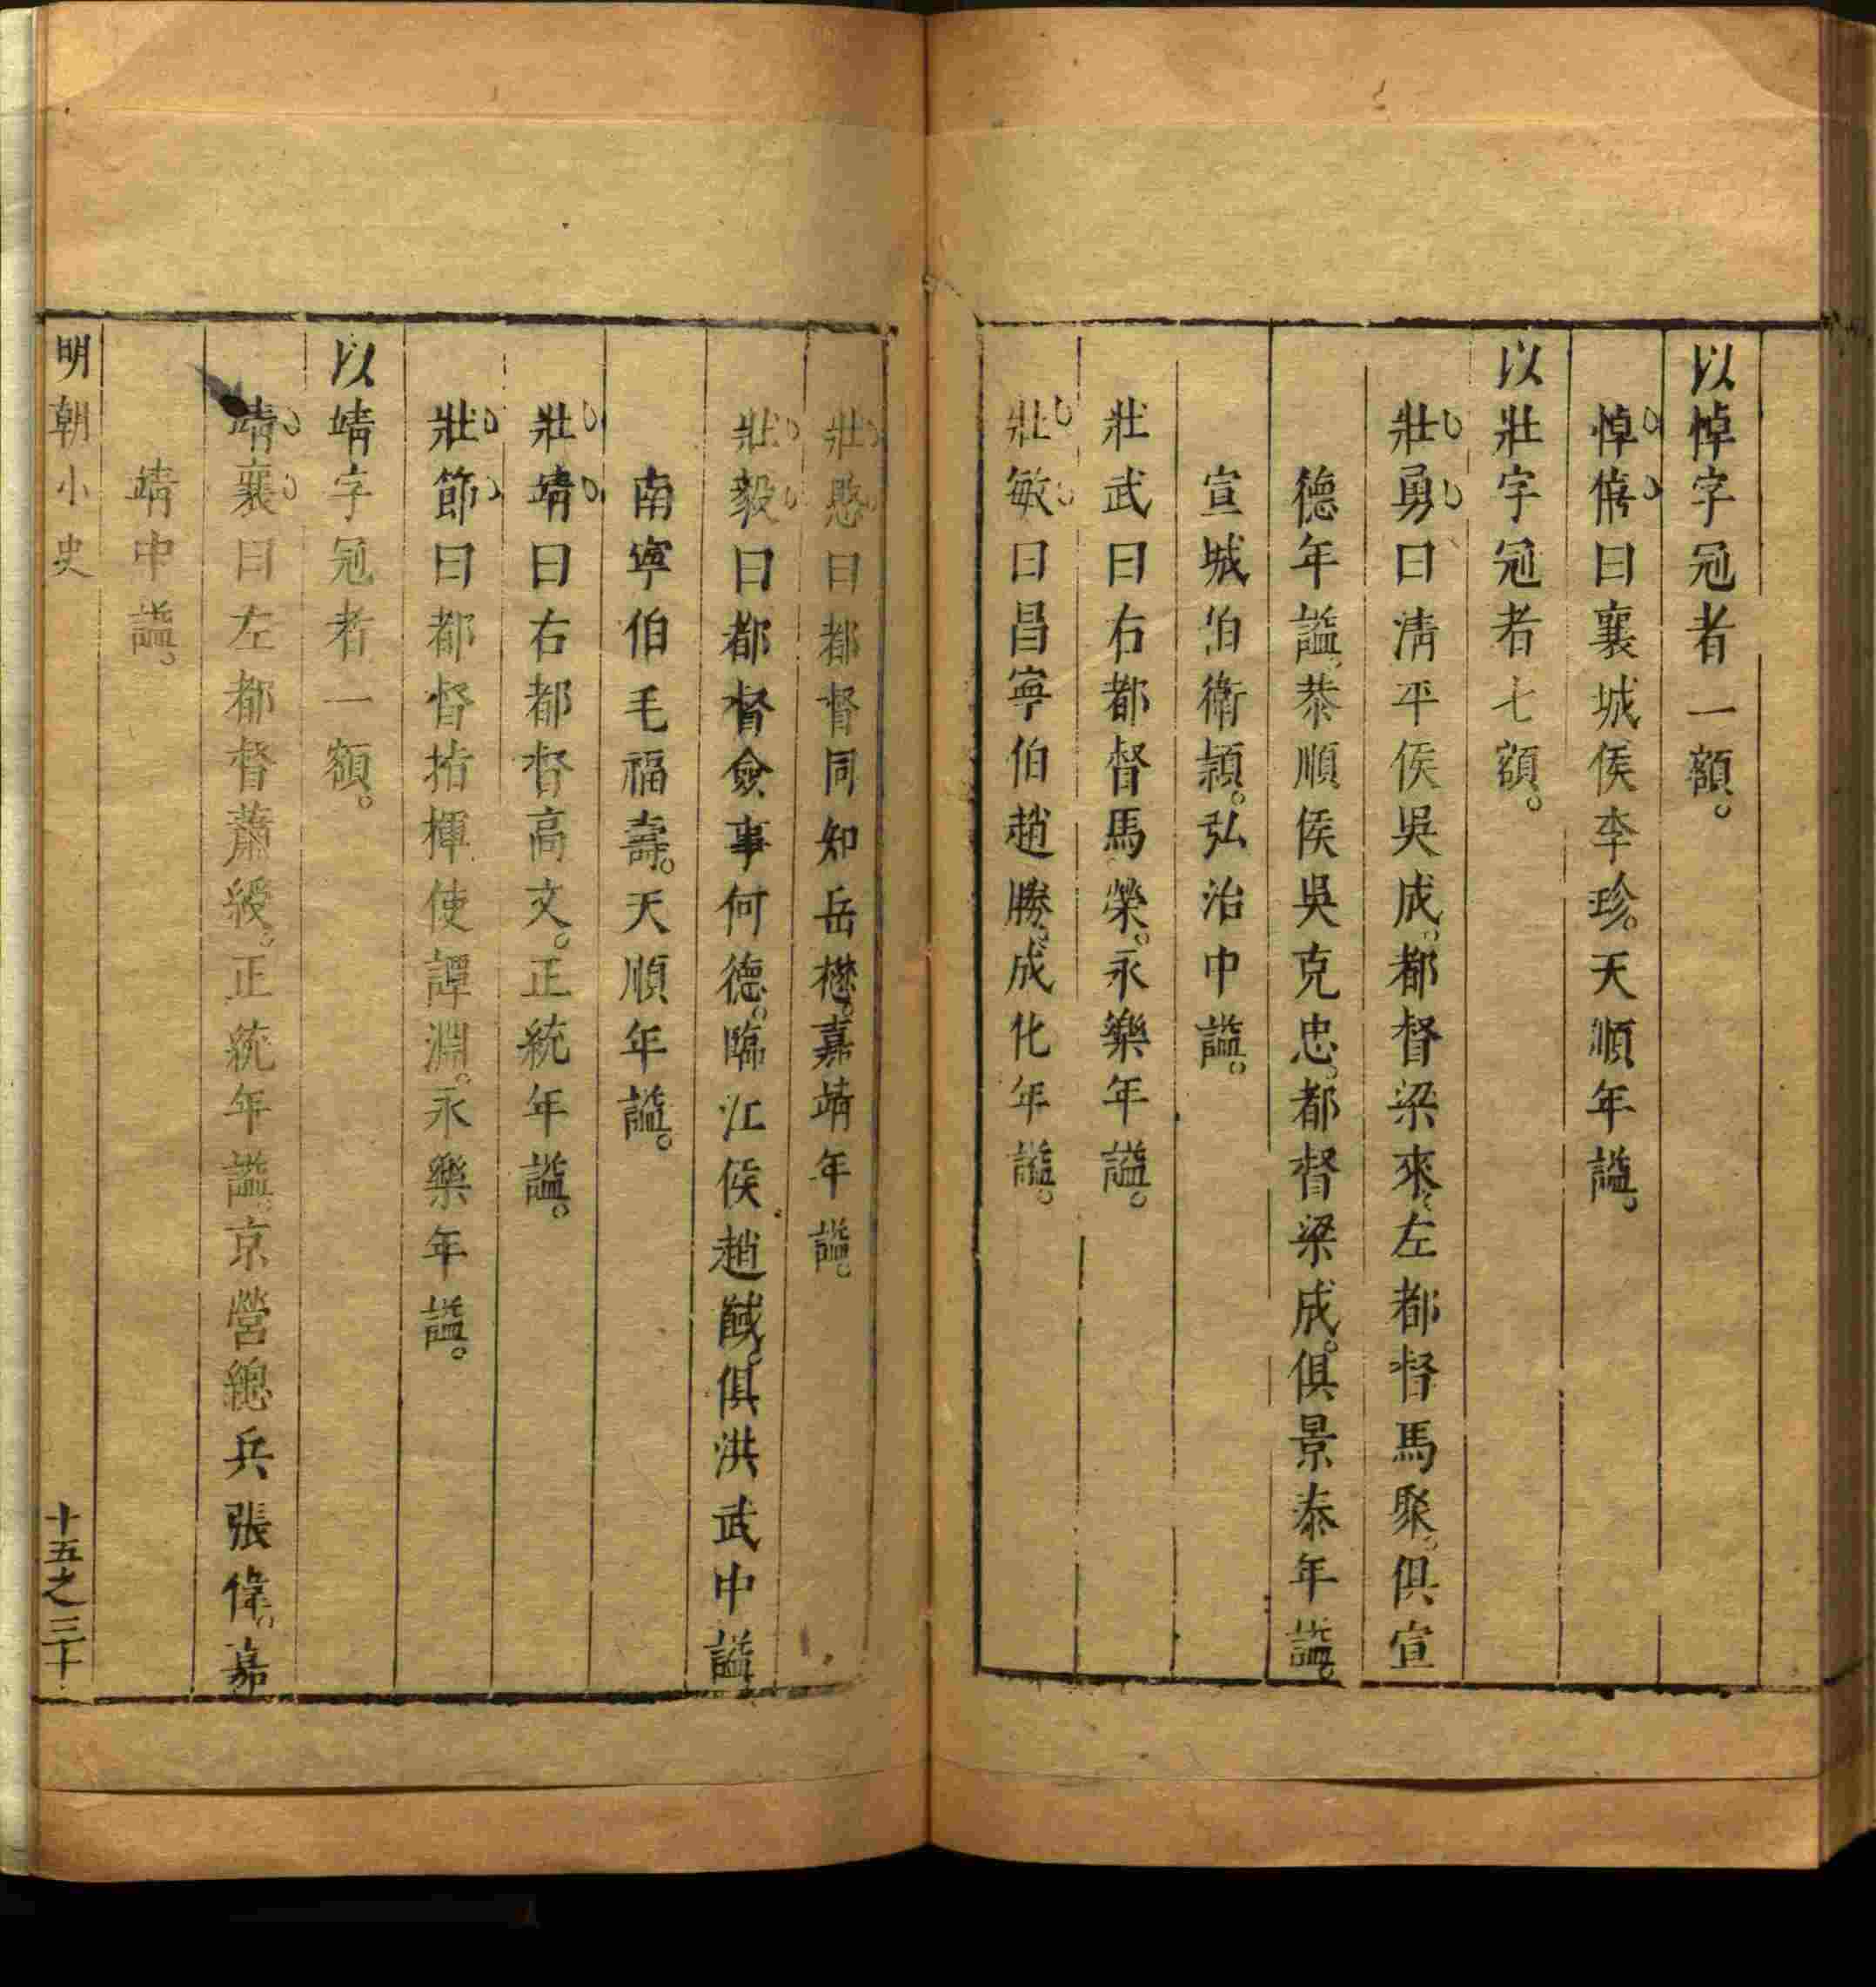 以悼字冠者一額。
悼僖曰襄城侯李珍。天順年謚。
以壯字冠者七額。
壯勇曰清平侯吳成。都督梁來。左都督馬聚。俱宣
德年謚。恭順侯吳克忠。都督梁成。俱景泰年謚。
宣城伯衛頴。弘治中謚。
壯武曰右都督馬榮。永樂年謚。
壯敏曰昌寧伯趙勝。成化年謚。
壯愍曰都督同知岳懋。嘉靖年謚。
壯毅曰都督僉事何德。臨江侯趙馘。俱洪武中謚
南寧伯毛福壽。天順年謚。
壯靖曰右都督高文。正統年謚。
壯節曰都督指揮使譚淵。永樂年謚。
以靖字冠者一額。
靖襄曰左都督蕭綬。正統年謚。京營總兵張偉。嘉
靖中謚。
明朝小史
十五之三十